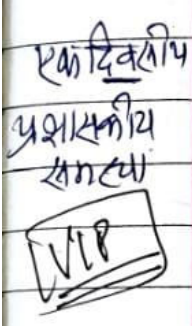 एक दिवसीय
प्रशासकीय
समस्या
VIP